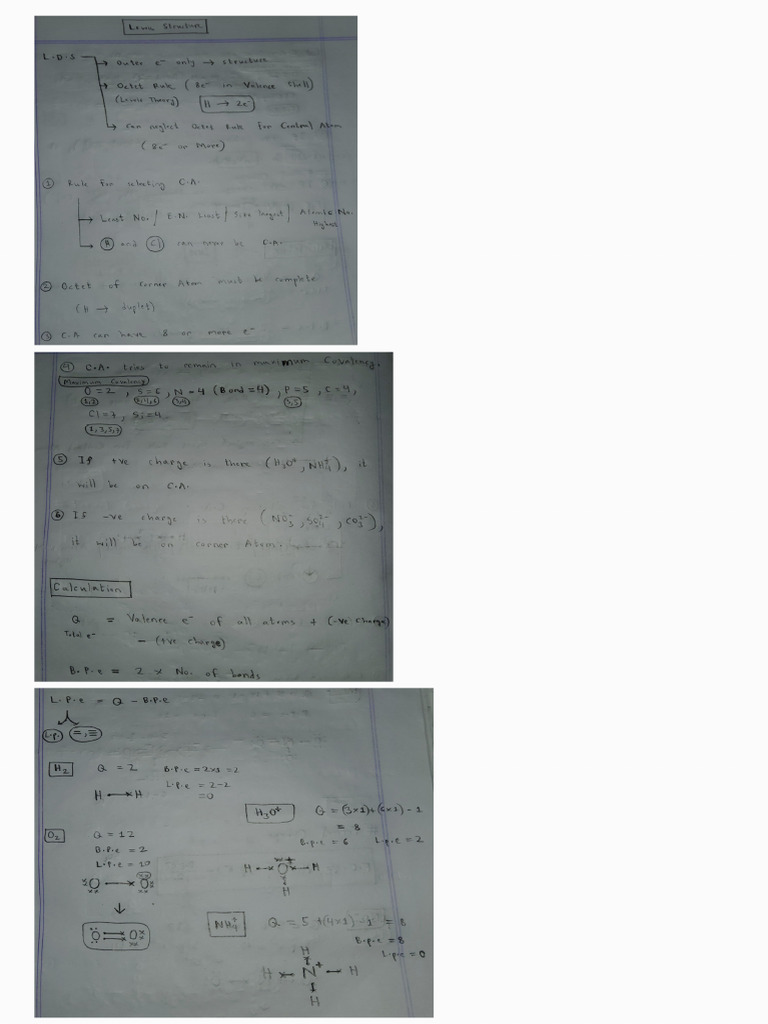 Lewis Structure
L.D.S → Outer e⁻ only → structure
→ Octet Rule ( 8e⁻ in Valence Shell)
(Lewis Theory) H → 2e⁻
→ Can neglect Octet Rule for Central Atom
( 8e⁻ or More)
① Rule for selecting C.A.
→ Least No. / E.N. Least / Size largest / Atomic No. Highest
→ H and Cl can never be C.A.
② Octet of corner Atom must be complete
(H → duplet)
③ C.A can have 8 or more e⁻
④ C.A. tries to remain in maximum Covalency.
Maximum Covalency
O = 2 , S = 6 , N = 4 (Bond = 4) , P = 5 , C = 4,
1,2 2,4,6 3,4 3,5
Cl = 7, Si = 4
1,3,5,7
⑤ If +ve charge is there (H₃O⁺, NH₄⁺), it
will be on C.A.
⑥ If -ve charge is there (NO₃⁻, SO₄²⁻, CO₃²⁻),
it will be on corner Atom.
Calculation
Q = Valence e⁻ of all atoms + (-ve charge)
Total e⁻ - (+ve charge)
B.P.e = 2 × No. of bonds
L.P.e = Q - B.P.e
L.P. =, ≡
H₂ Q = 2 B.P.e = 2×1 = 2
L.P.e = 2-2
= 0
H H
H₃O⁺ Q = (3×1)+(6×1) - 1
= 8
B.P.e = 6 L.P.e = 2
H O⁺ H
H
O₂ Q = 12
B.P.e = 2
L.P.e = 10
O → O
↓
O O
NH₄⁺ Q = 5 + (4×1) - 1 = 8
B.P.e = 8
L.P.e = 0
H
H N⁺ H
H